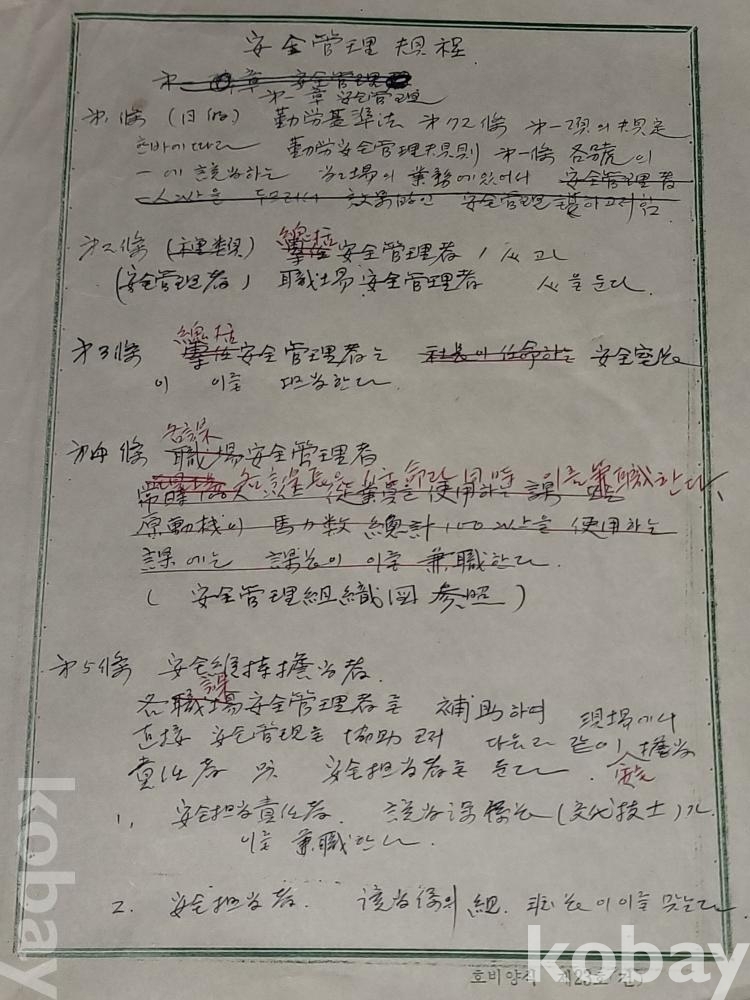 安全管理 規程
第一章 安全管理
第1條 (目的) 勤労基準法 第72條 第一項의 規定
한바에따라 勤労安全管理規則 第一條 各號의
一에 該当하는 当工場의 業務에있어서 安全管理者
安全管理
第2條 (種類) 總括 安全管理者 1人고
(安全管理者) 職場 安全管理者 人을둔다.
第3條 總括 安全管理者는 社長이 任命하는 安全室長
이 이를 担当한다.
第4條 各課 職場安全管理者
各課長은 任命과 同時 이를 兼職한다.
從業員을 使用하는 課
原動機의 馬力数 總計 100 以上을 使用하는
課에는 課長이 이를 兼職한다.
( 安全管理組織図 參照 )
第5條 安全維持擔当者.
課
各職場安全管理者를 補助하며 現場에서
直接 安全管理를 協助코저 다음과 같이 擔当
責任者 및 安全担当者를 둔다.
1, 安全担当責任者. 該当課係長(交代技士)가
이를 兼職한다.
2. 安全担当者. 該当係의 組. 班長이 이를 맞는다.
호비양식 제23호
kobay
kobay